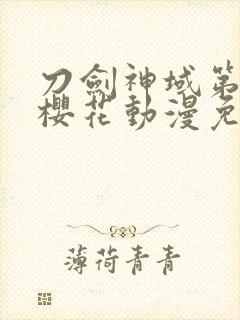 刀劍神域第
櫻花動漫免
薄荷青青